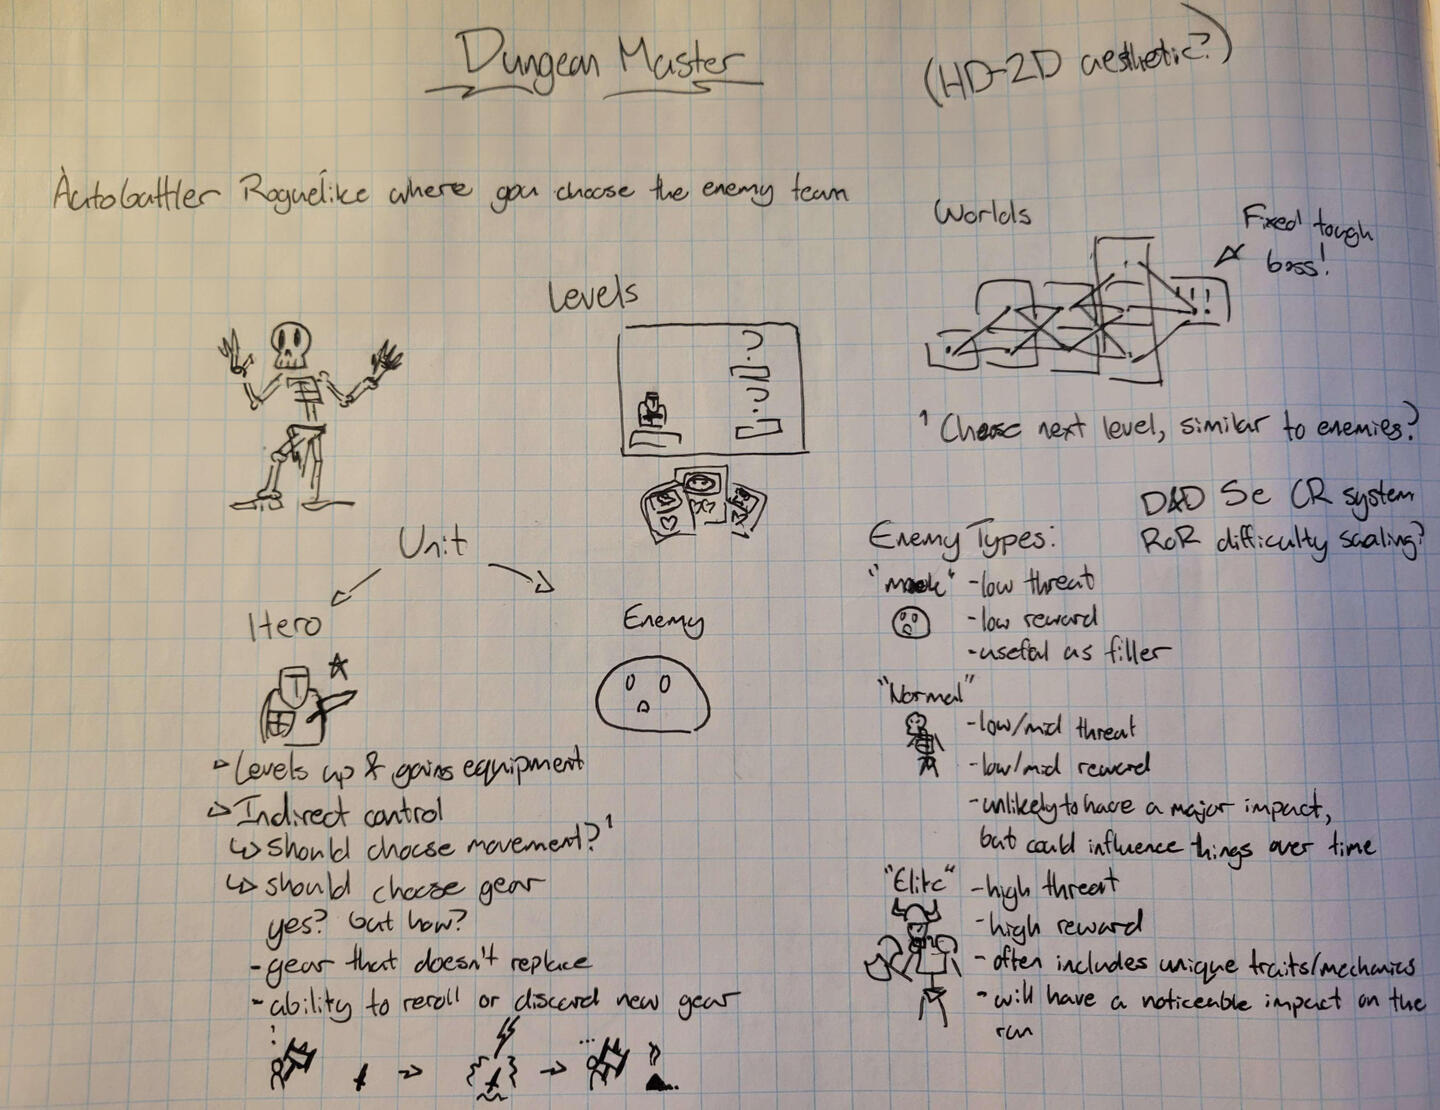 Dungeon Master
(HD-2D aesthetic?)
Autobattler Roguelike where you choose the enemy team
Levels
Worlds
Fixed tough
boss!
!!!
¹ Choose next level, similar to enemies?
D&D 5e CR system
RoR difficulty scaling?
Unit
Hero
Enemy
Levels up & gains equipment
Indirect control
↳ should choose movement?¹
↳ should choose gear
yes? but how?
- gear that doesn't replace
- ability to reroll or discard new gear
Enemy Types:
- low threat
- low reward
- useful as filler
"Normal"
- low/mid threat
- low/mid reward
- unlikely to have a major impact,
but could influence things over time
"Elite"
- high threat
- high reward
- often includes unique traits/mechanics
- will have a noticeable impact on the
run